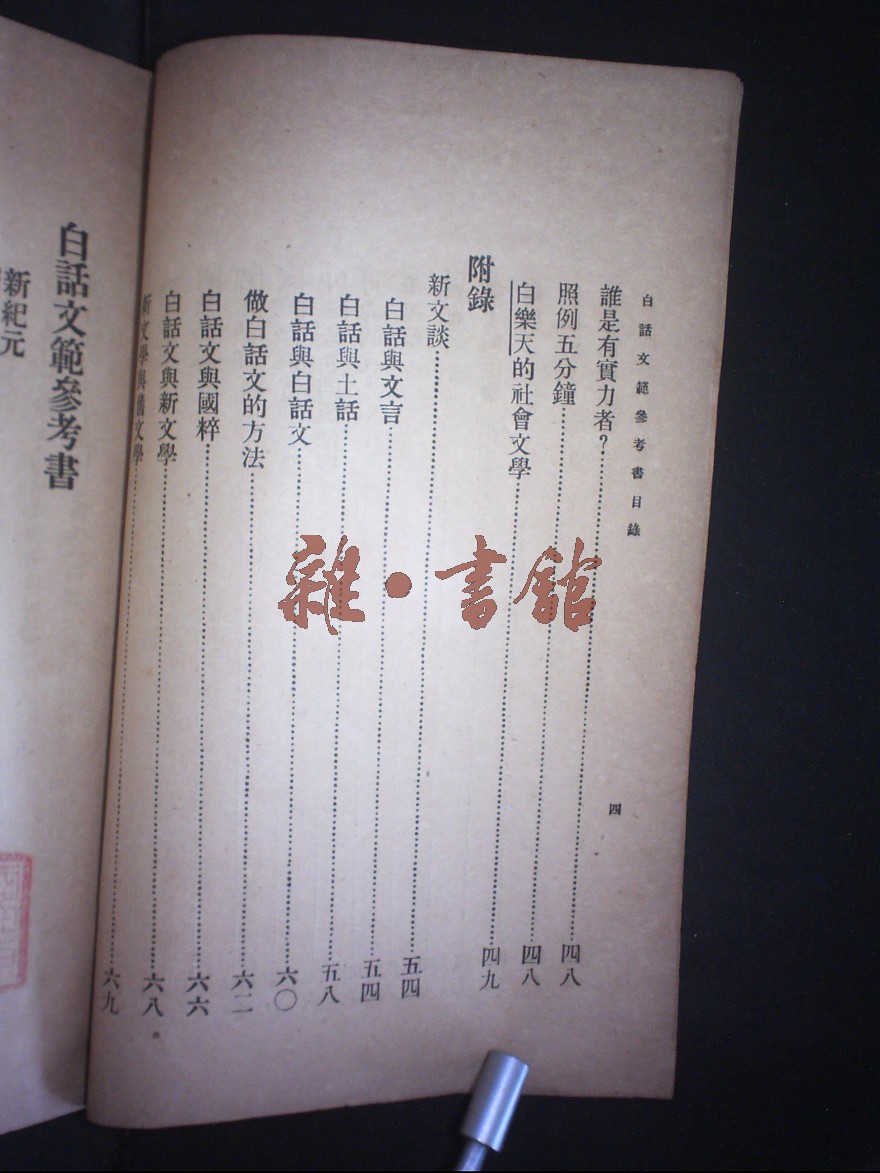 白話文範參考書目錄
四
誰是有實力者？四八
照例五分鐘四八
白樂天的社會文學四九
附錄
新文談五四
白話與文言五四
白話與土話五八
白話與白話文六〇
做白話文的方法六二
白話文與國粹六六
白話文與新文學六八
新文學與舊文學六九
白話文範參考書
新紀元
雜・書館